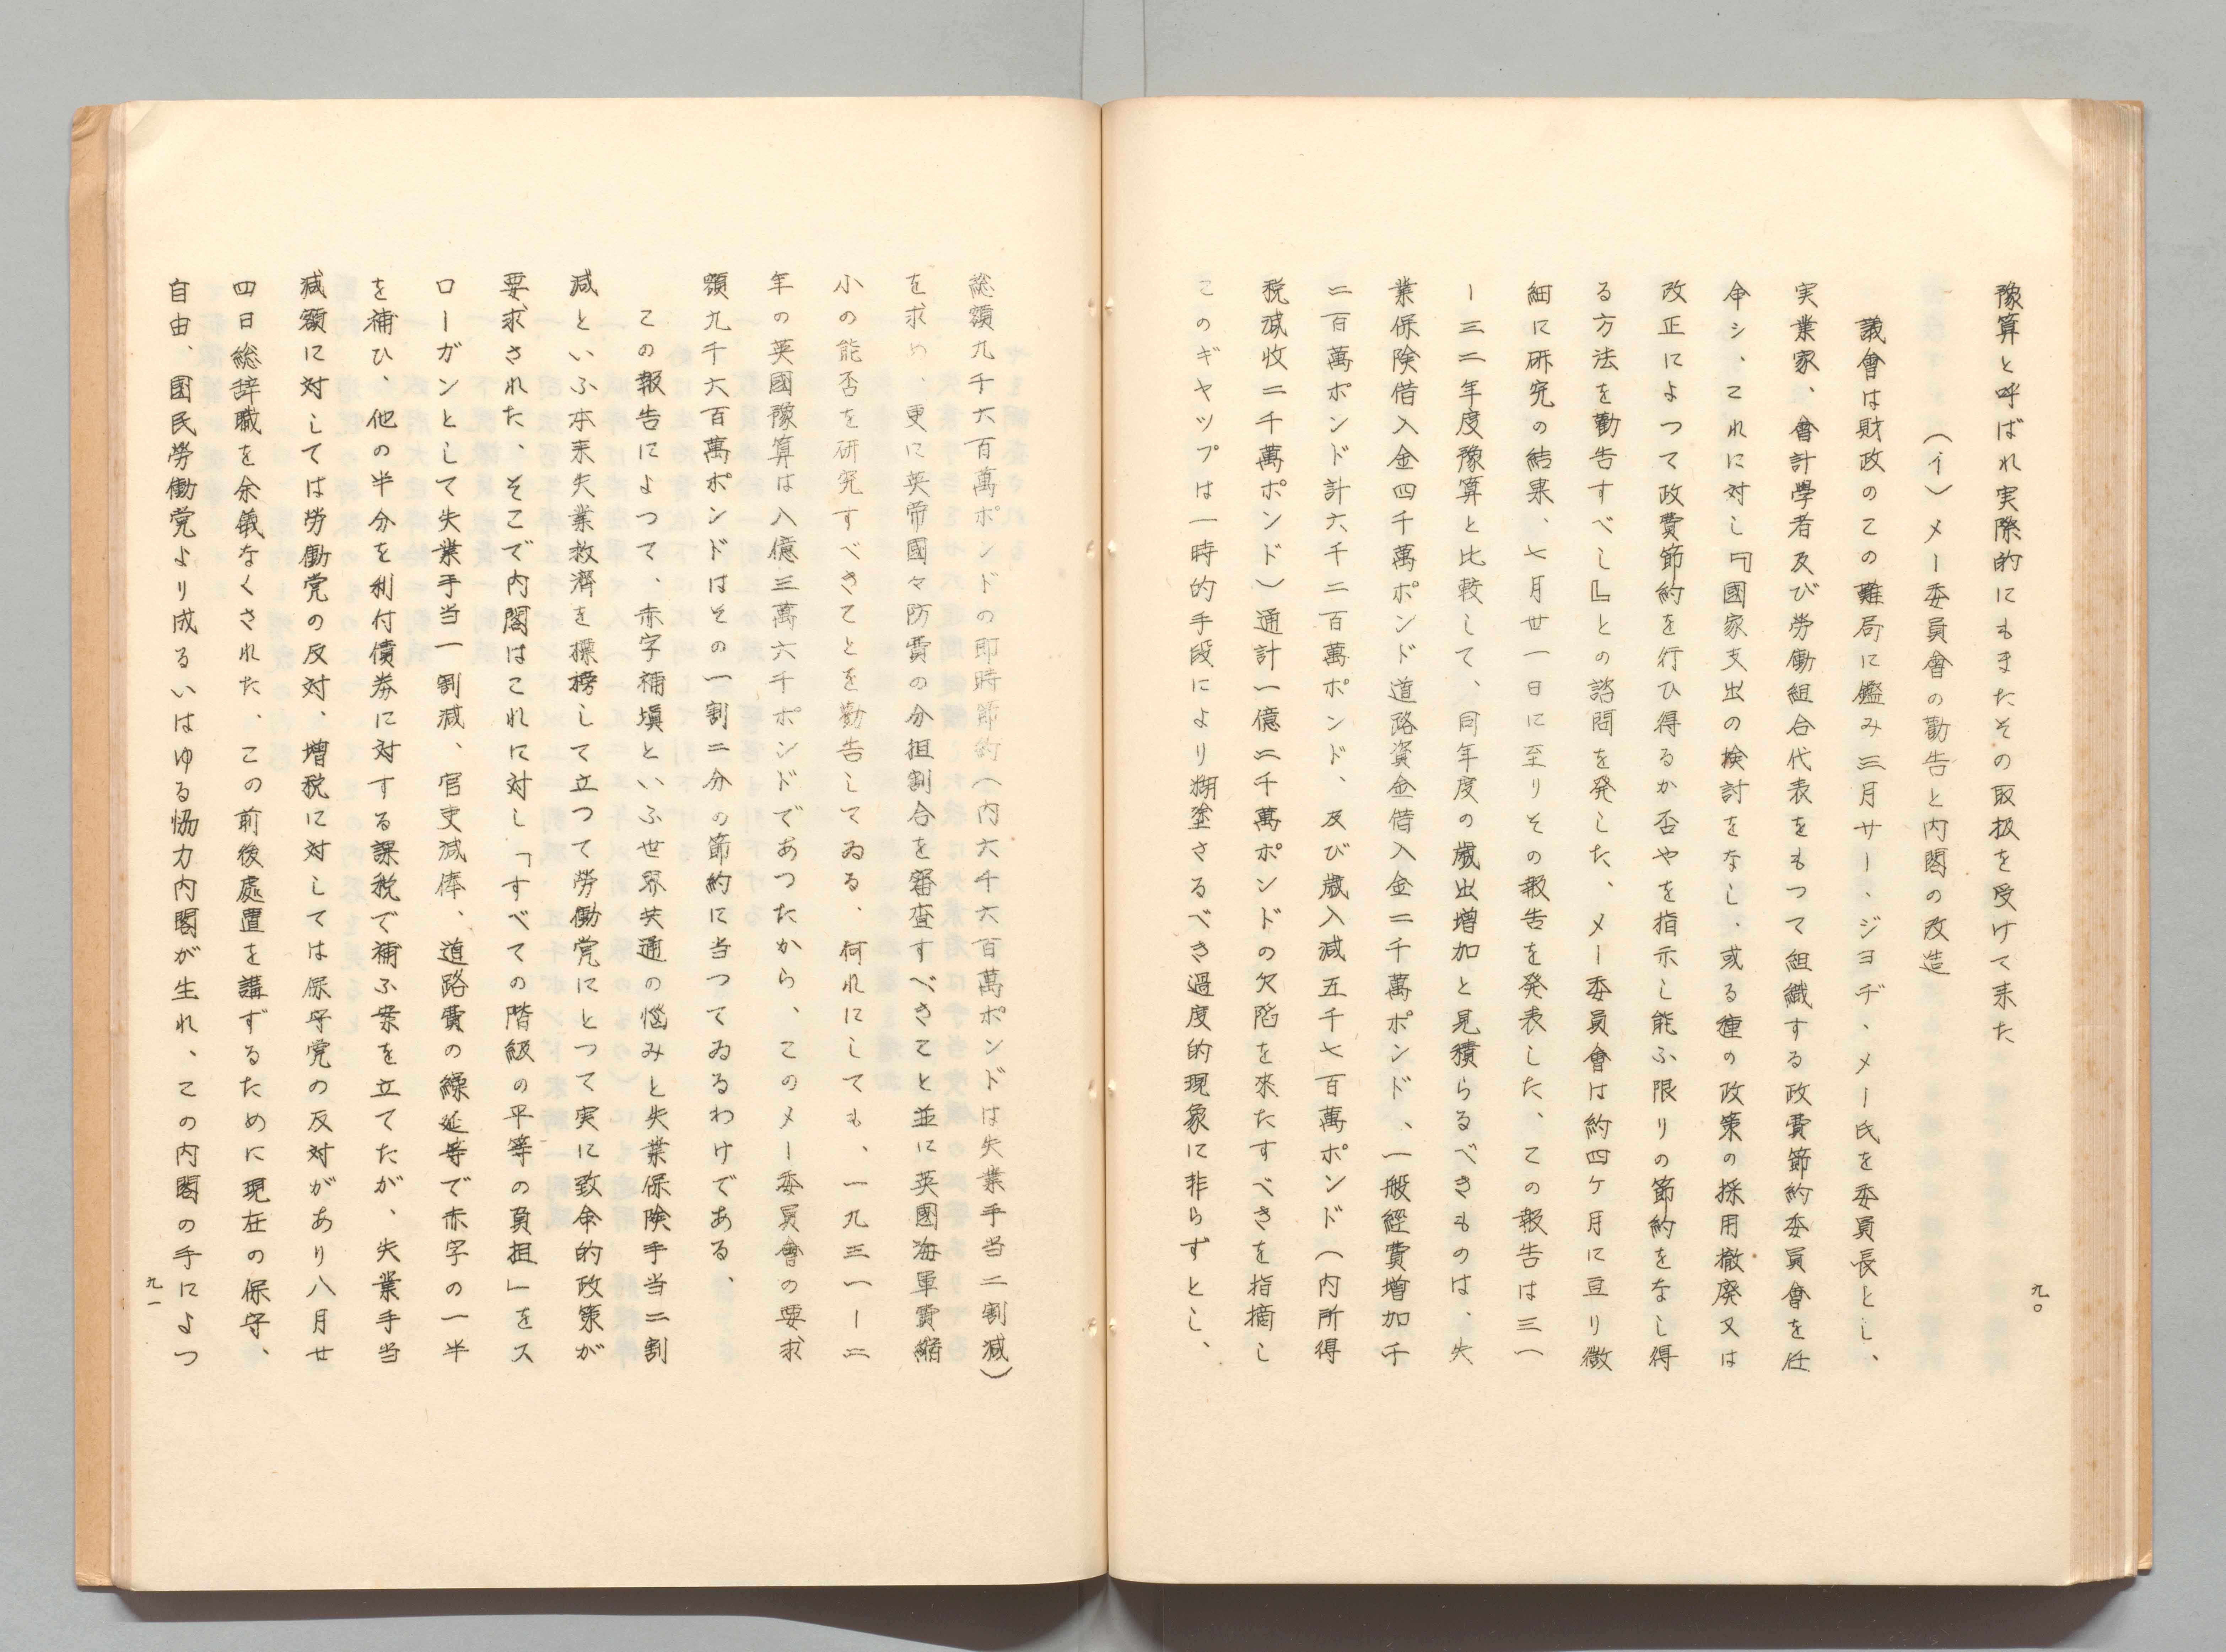 豫算と呼ばれ実際的にもまたその取扱を受けて来た
（イ）メー委員會の勸告と内閣の改造
議會は財政のこの難局に鑑み三月サー、ジヨヂ、メー氏を委員長とし、
実業家、會計學者及び労働組合代表をもつて組織する政費節約委員會を任
命シ、これに対し『國家支出の検討をなし、或る種の政策の採用撤廃又は
改正によつて政費節約を行ひ得るか否やを指示し能ふ限りの節約をなし得
る方法を勸告すべし』との諮問を発した、メー委員會は約四ケ月に亘り徴
細に研究の結果、七月廿一日に至りその報告を発表した、この報告は三一
ー三二年度豫算と比較して、同年度の歳出増加と見積らるべきものは、失
業保険借入金四千萬ポンド道路資金借入金二千萬ポンド、一般経費増加千
二百萬ポンド計六千二百萬ポンド、及び歳入減五千七百萬ポンド（内所得
税減收二千萬ポンド）通計一億二千萬ポンドの欠陷を來たすべきを指摘し
このギヤツプは一時的手段により糊塗さるべき過度的現象に非らずとし、
九〇
総額九千六百萬ポンドの即時節約（内六千六百萬ポンドは失業手当二割減）
を求め、更に英帝國々防費の分担割合を審査すべきこと並に英國海軍費縮
小の能否を研究すべきことを勸告してゐる、何れにしても、一九三一ー二
年の英國豫算は八億三萬六千ポンドであつたから、このメー委員會の要求
額九千六百萬ポンドはその一割二分の節約に当つてゐるわけである、
この報告によつて、赤字補塡といふ世界共通の悩みと失業保険手当二割
減といふ本来失業救濟を標榜して立つて労働党にとつて実に致命的政策が
要求された、そこで内閣はこれに対し「すべての階級の平等の負担」をス
ローガンとして失業手当一割減、官吏減俸、道路費の繰延等で赤字の一半
を補ひ、他の半分を利付債券に対する課税で補ふ案を立てたが、失業手当
減額に対しては労働党の反対、増税に対しては保守党の反対があり八月廿
四日総辞職を余儀なくされた、この前後處置を講ずるために現在の保守、
自由、国民労働党より成るいはゆる恊力内閣が生れ、この内閣の手によつ
九一